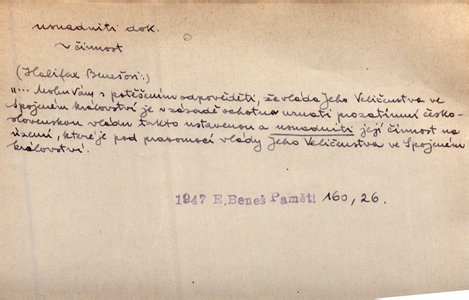 usnadniti dok.
~ činnost
(Halifax Benešovi:)
„... Mohu Vám s potěšením odpověděti, že vláda Jeho Veličenstva ve
Spojeném království je v zásadě ochotna uznati prozatímní česko-
slovenskou vládu takto ustavenou a usnadniti její činnost na
území, které je pod pravomocí vlády Jeho Veličenstva ve Spojeném
království.
1947 E.Beneš Paměti 160, 26.